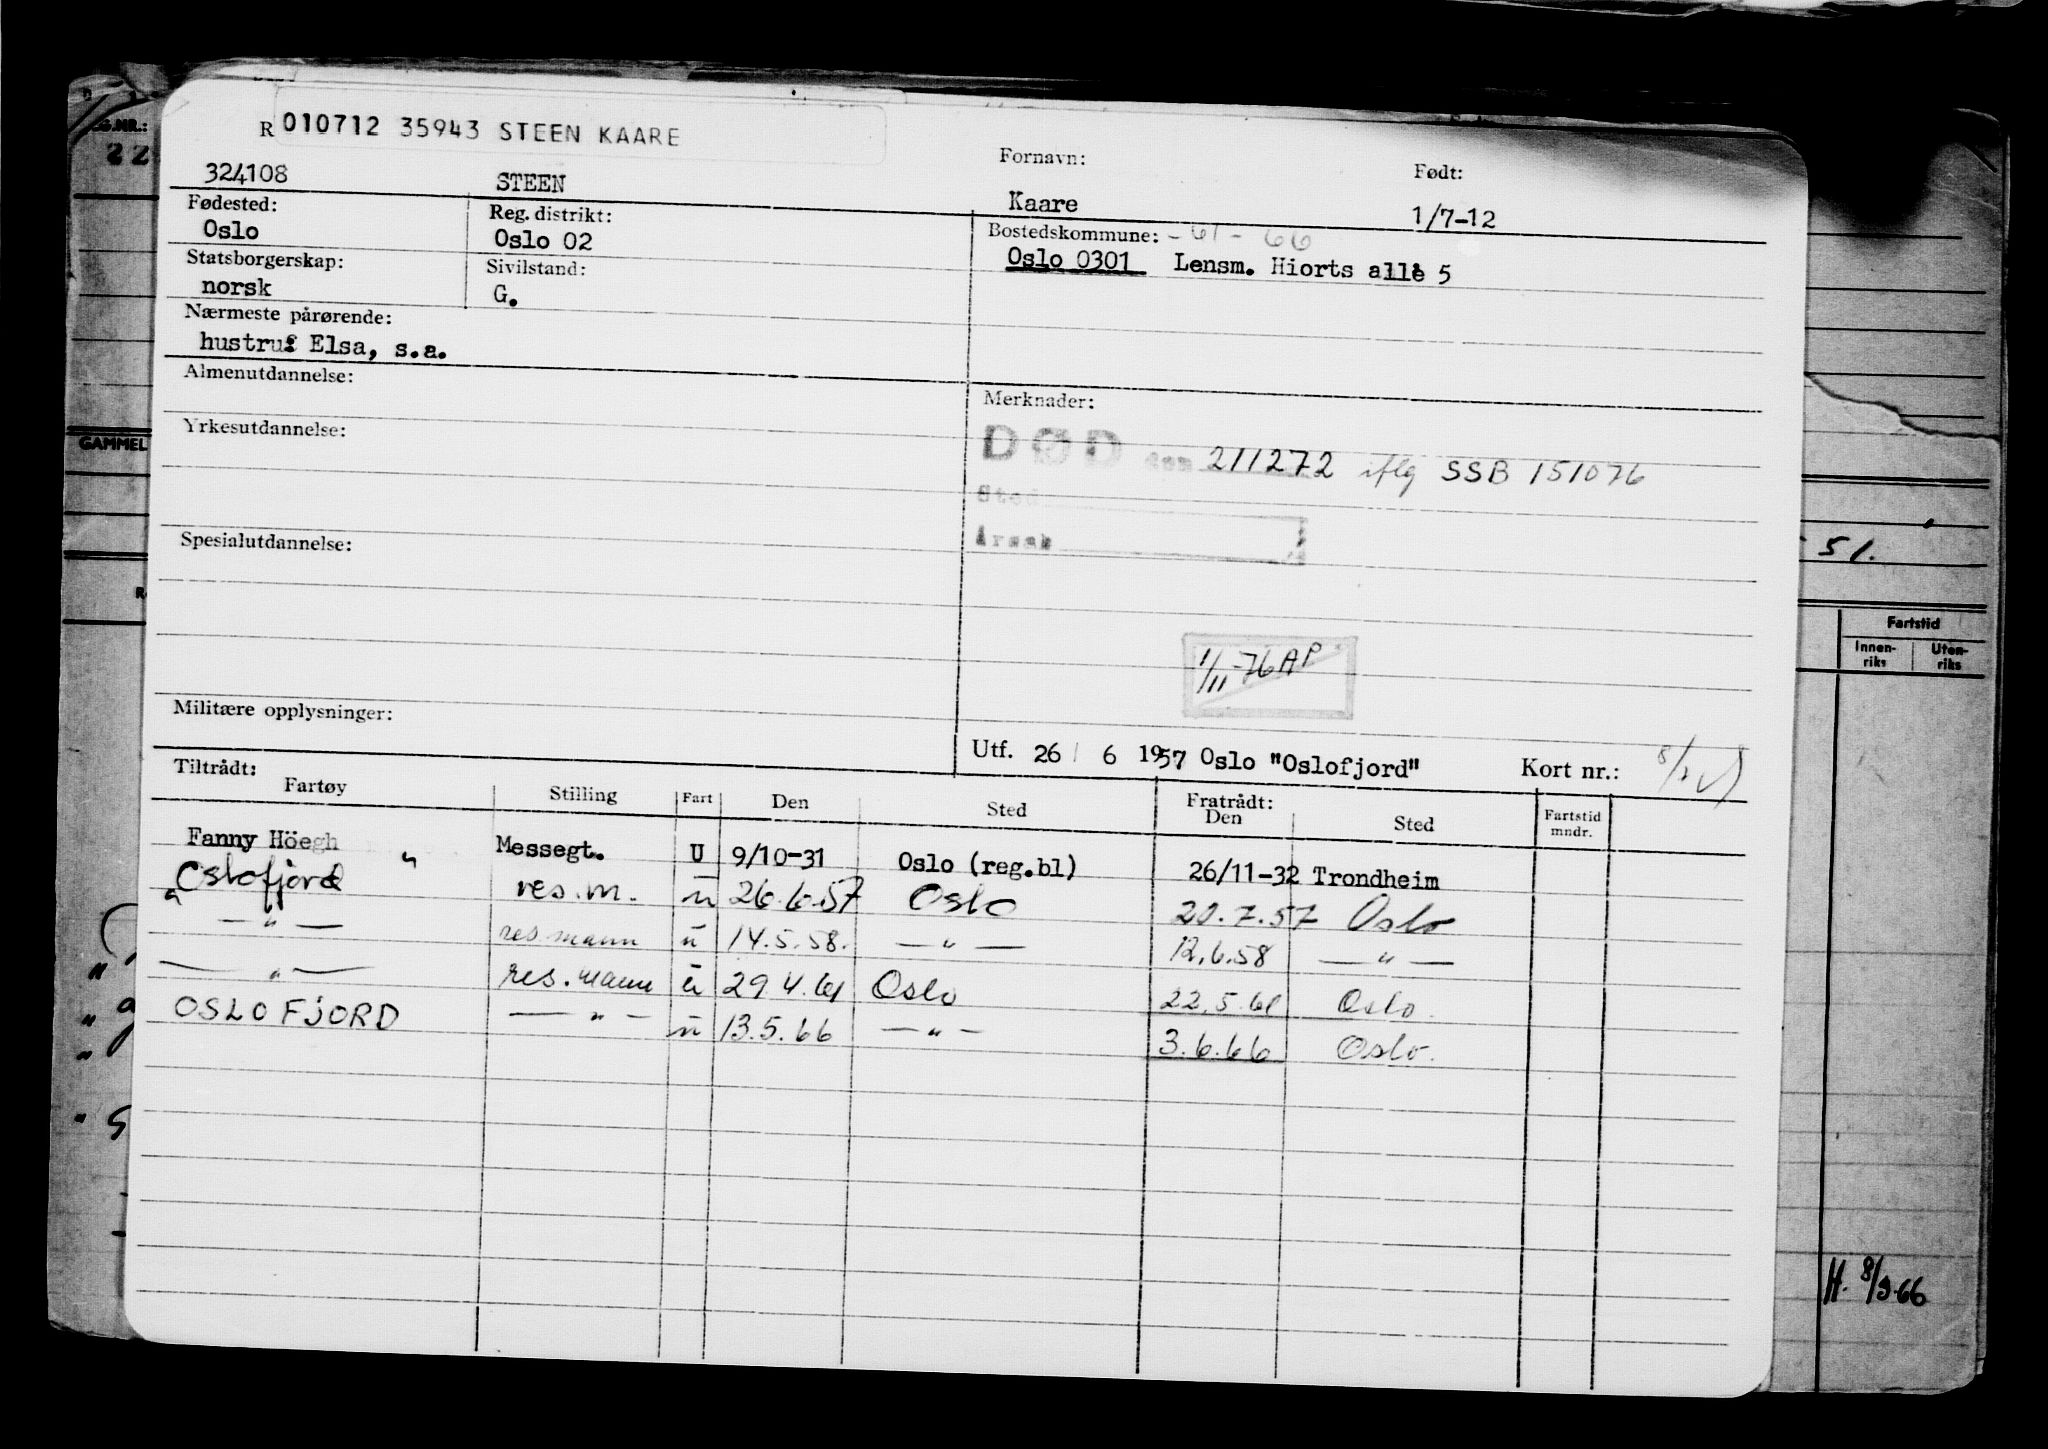 R 010712 35943 STEEN KAARE
324108 STEEN Fornavn: Kaare Født: 1/7-12
Fødested: Oslo Reg. distrikt: Oslo 02 Bostedskommune: - 61 - 66
Oslo 0301 Lensm. Hiorts allè 5
Statsborgerskap: norsk Sivilstand: G.
Nærmeste pårørende:
hustru: Elsa, s.a.
Almenutdannelse:
Merknader:
Yrkesutdannelse:
DØD den 211272 iflg SSB 151076
Sted
Årsak
Spesialutdannelse:
1/11-76 AP
Militære opplysninger:
Utf. 26 / 6 1957 Oslo "Oslofjord" Kort nr.:
Tiltrådt: Fratrådt:
Fartøy Stilling Fart Den Sted Den Sted Fartstid mndr.
Fanny Höegh Messegt. U 9/10-31 Oslo (reg.bl) 26/11-32 Trondheim
Oslofjord res.m. u 26.6.57 Oslo 20.7.57 Oslo
— " — res mann u 14.5.58. — " — 12.6.58 — " —
— " — res.mann u 29.4.61 Oslo 22.5.61 Oslo.
OSLOFJORD — " — u 13.5.66 — " — 3.6.66 Oslo.
REG.NR.:
22
GAMMEL
51.
Fartstid
Innen-riks Uten-riks
H. 8/9.66